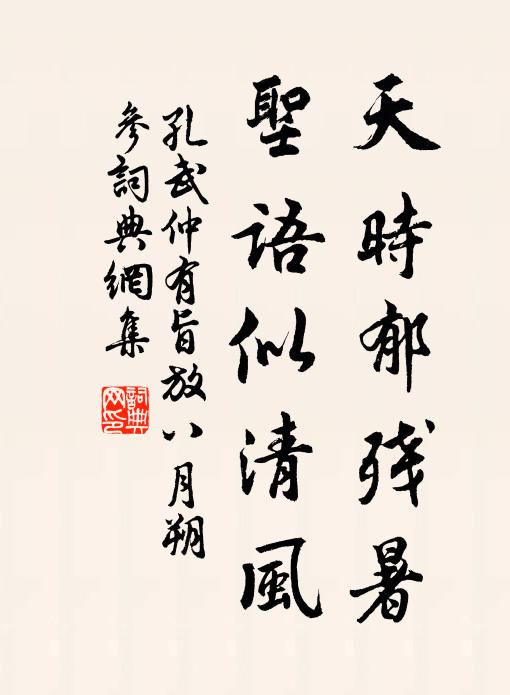 天時郁残暑
聖語似清風
孔武仲有旨放八月朔
參詞典網集
詞典網印